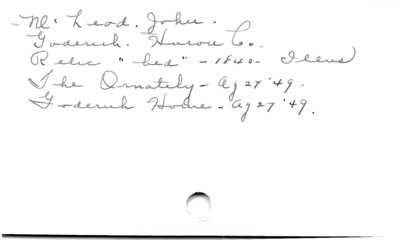 Mc Leod. John.
Goderich. Huron Co.
Relic "bed" - 1840 -
The Ornately - Ag 27 '49.
Goderich Home - Ag 27 '49.